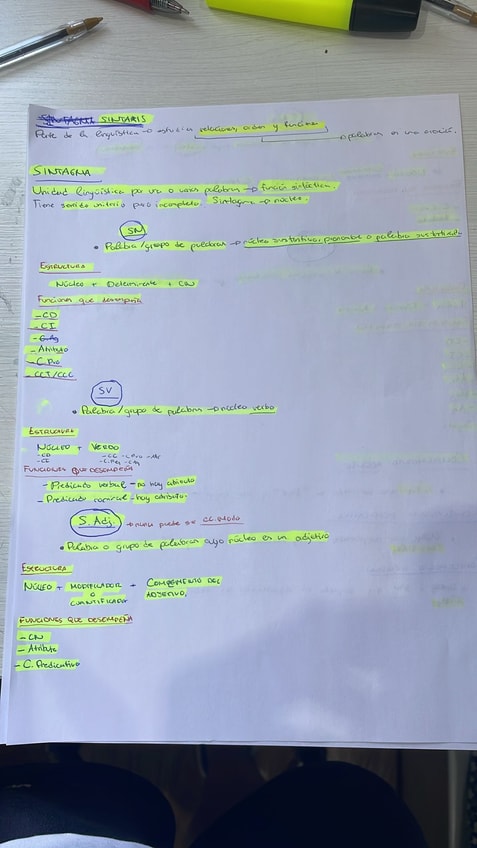 SINTAGMA SINTAXIS
Parte de la lingüística → estudia relaciones, orden y función
→ palabras en una oración.
SINTAGMA
Unidad lingüística por una o varias palabras → función sintáctica.
Tiene sentido unitario pero incompleto. Sintagma → núcleo.
SN
• Palabra/grupo de palabras → núcleo sustantivo, pronombre o palabra sustantivada
ESTRUCTURA
Núcleo + Determinante + CN
Funciones que desempeña
- CD
- CI
- C.Ag
- Atributo
- C. Pvo
- CCT/CCC
SV
• Palabra/grupo de palabras → núcleo verbo
ESTRUCTURA
NÚCLEO + VERBO
- CD - CC - C.Pvo - Atr
- CI - C.Reg - CAg
FUNCIONES QUE DESEMPEÑA
- Predicado verbal - no hay atributo
- Predicado nominal - hay atributo.
S. Adj. → nunca puede ser CC. Modo
• Palabra o grupo de palabras cuyo núcleo es un adjetivo
ESTRUCTURA
NÚCLEO + MODIFICADOR O CUANTIFICADOR + COMPLEMENTO DEL ADJETIVO.
FUNCIONES QUE DESEMPEÑA
- CN
- Atributo
- C. Predicativo